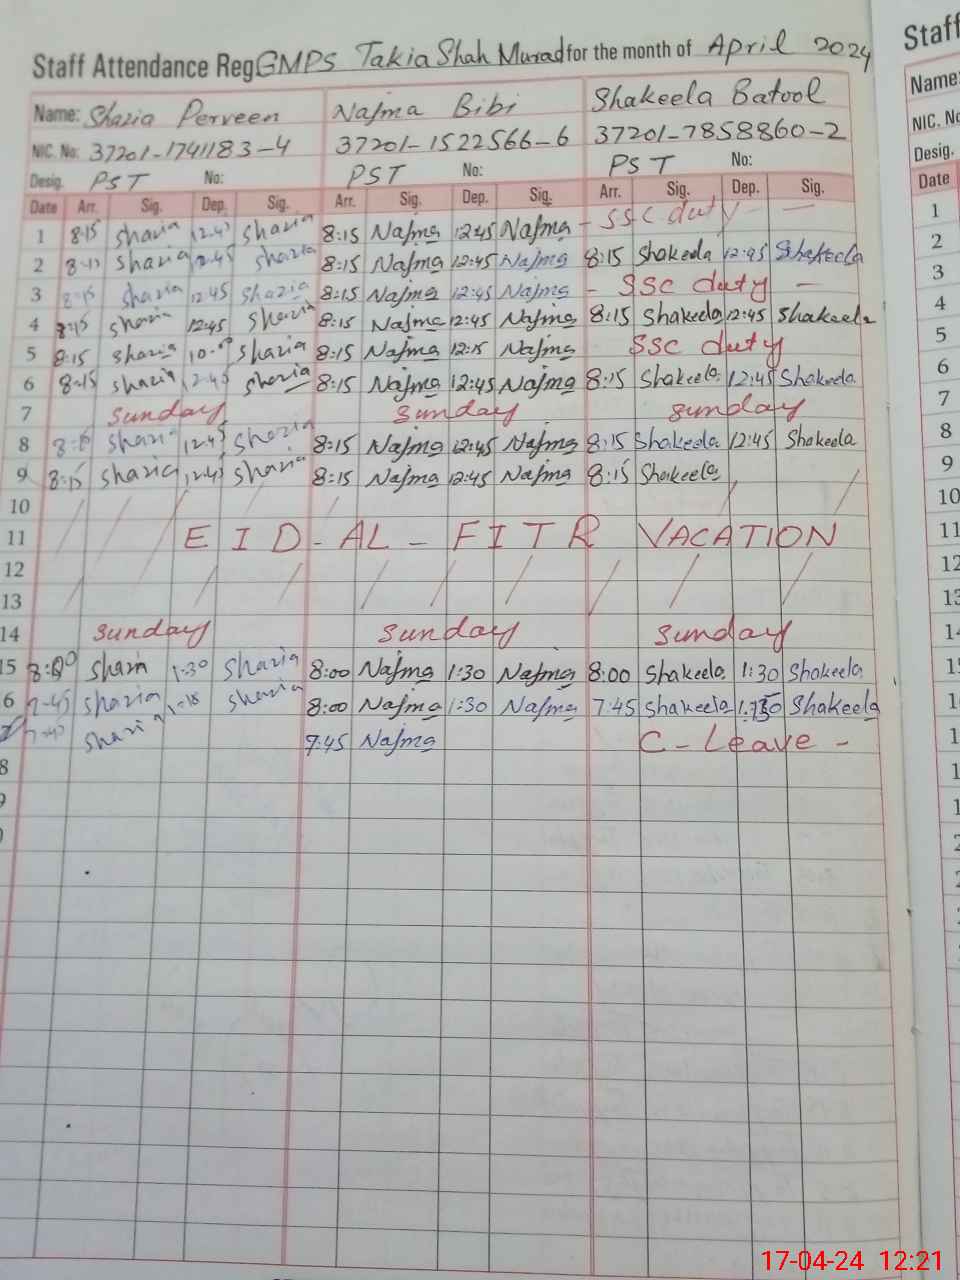 Staff Attendance Reg GMPS Takia Shah Murad for the month of April 2024
Name: Shazia Perveen Najma Bibi Shakeela Batool
NIC. No: 37201-1741183-4 37201-1522566-6 37201-7858860-2
Desig. PST No: PST No: PST No:
Date Arr. Sig. Dep. Sig. Arr. Sig. Dep. Sig. Arr. Sig. Dep. Sig.
1 8:15 Shazia 12:45 Shazia 8:15 Najma 12:45 Najma - SSC duty -
2 8:15 Shazia 12:45 Shazia 8:15 Najma 12:45 Najma 8:15 Shakeela 12:45 Shakeela
3 8:15 Shazia 12:45 Shazia 8:15 Najma 12:45 Najma - SSC duty -
4 8:15 Shazia 12:45 Shazia 8:15 Najma 12:45 Najma 8:15 Shakeela 12:45 Shakeela
5 8:15 Shazia Shazia 8:15 Najma 12:15 Najma SSC duty
6 8:15 Shazia 12:45 Shazia 8:15 Najma 12:45 Najma 8:15 Shakeela 12:45 Shakeela
7 Sunday Sunday Sunday
8 Shazia 12:45 Shazia 8:15 Najma 12:45 Najma 8:15 Shakeela 12:45 Shakeela
9 8:15 Shazia 12:45 Shazia 8:15 Najma 12:45 Najma 8:15 Shakeela
10
11 EID-AL-FITR VACATION
12
13
14 Sunday Sunday Sunday
15 8:00 Sham 1:30 Shazia 8:00 Najma 1:30 Najma 8:00 Shakeela 1:30 Shakeela
6 Shazia Shazia 8:00 Najma 1:30 Najma 7:45 Shakeela Shakeela
Shazia 7:45 Najma C-Leave -
8
9
Staff
Name:
NIC. No
Desig.
Date
1
2
3
4
5
6
7
8
9
10
11
12
13
14
17-04-24 12:21